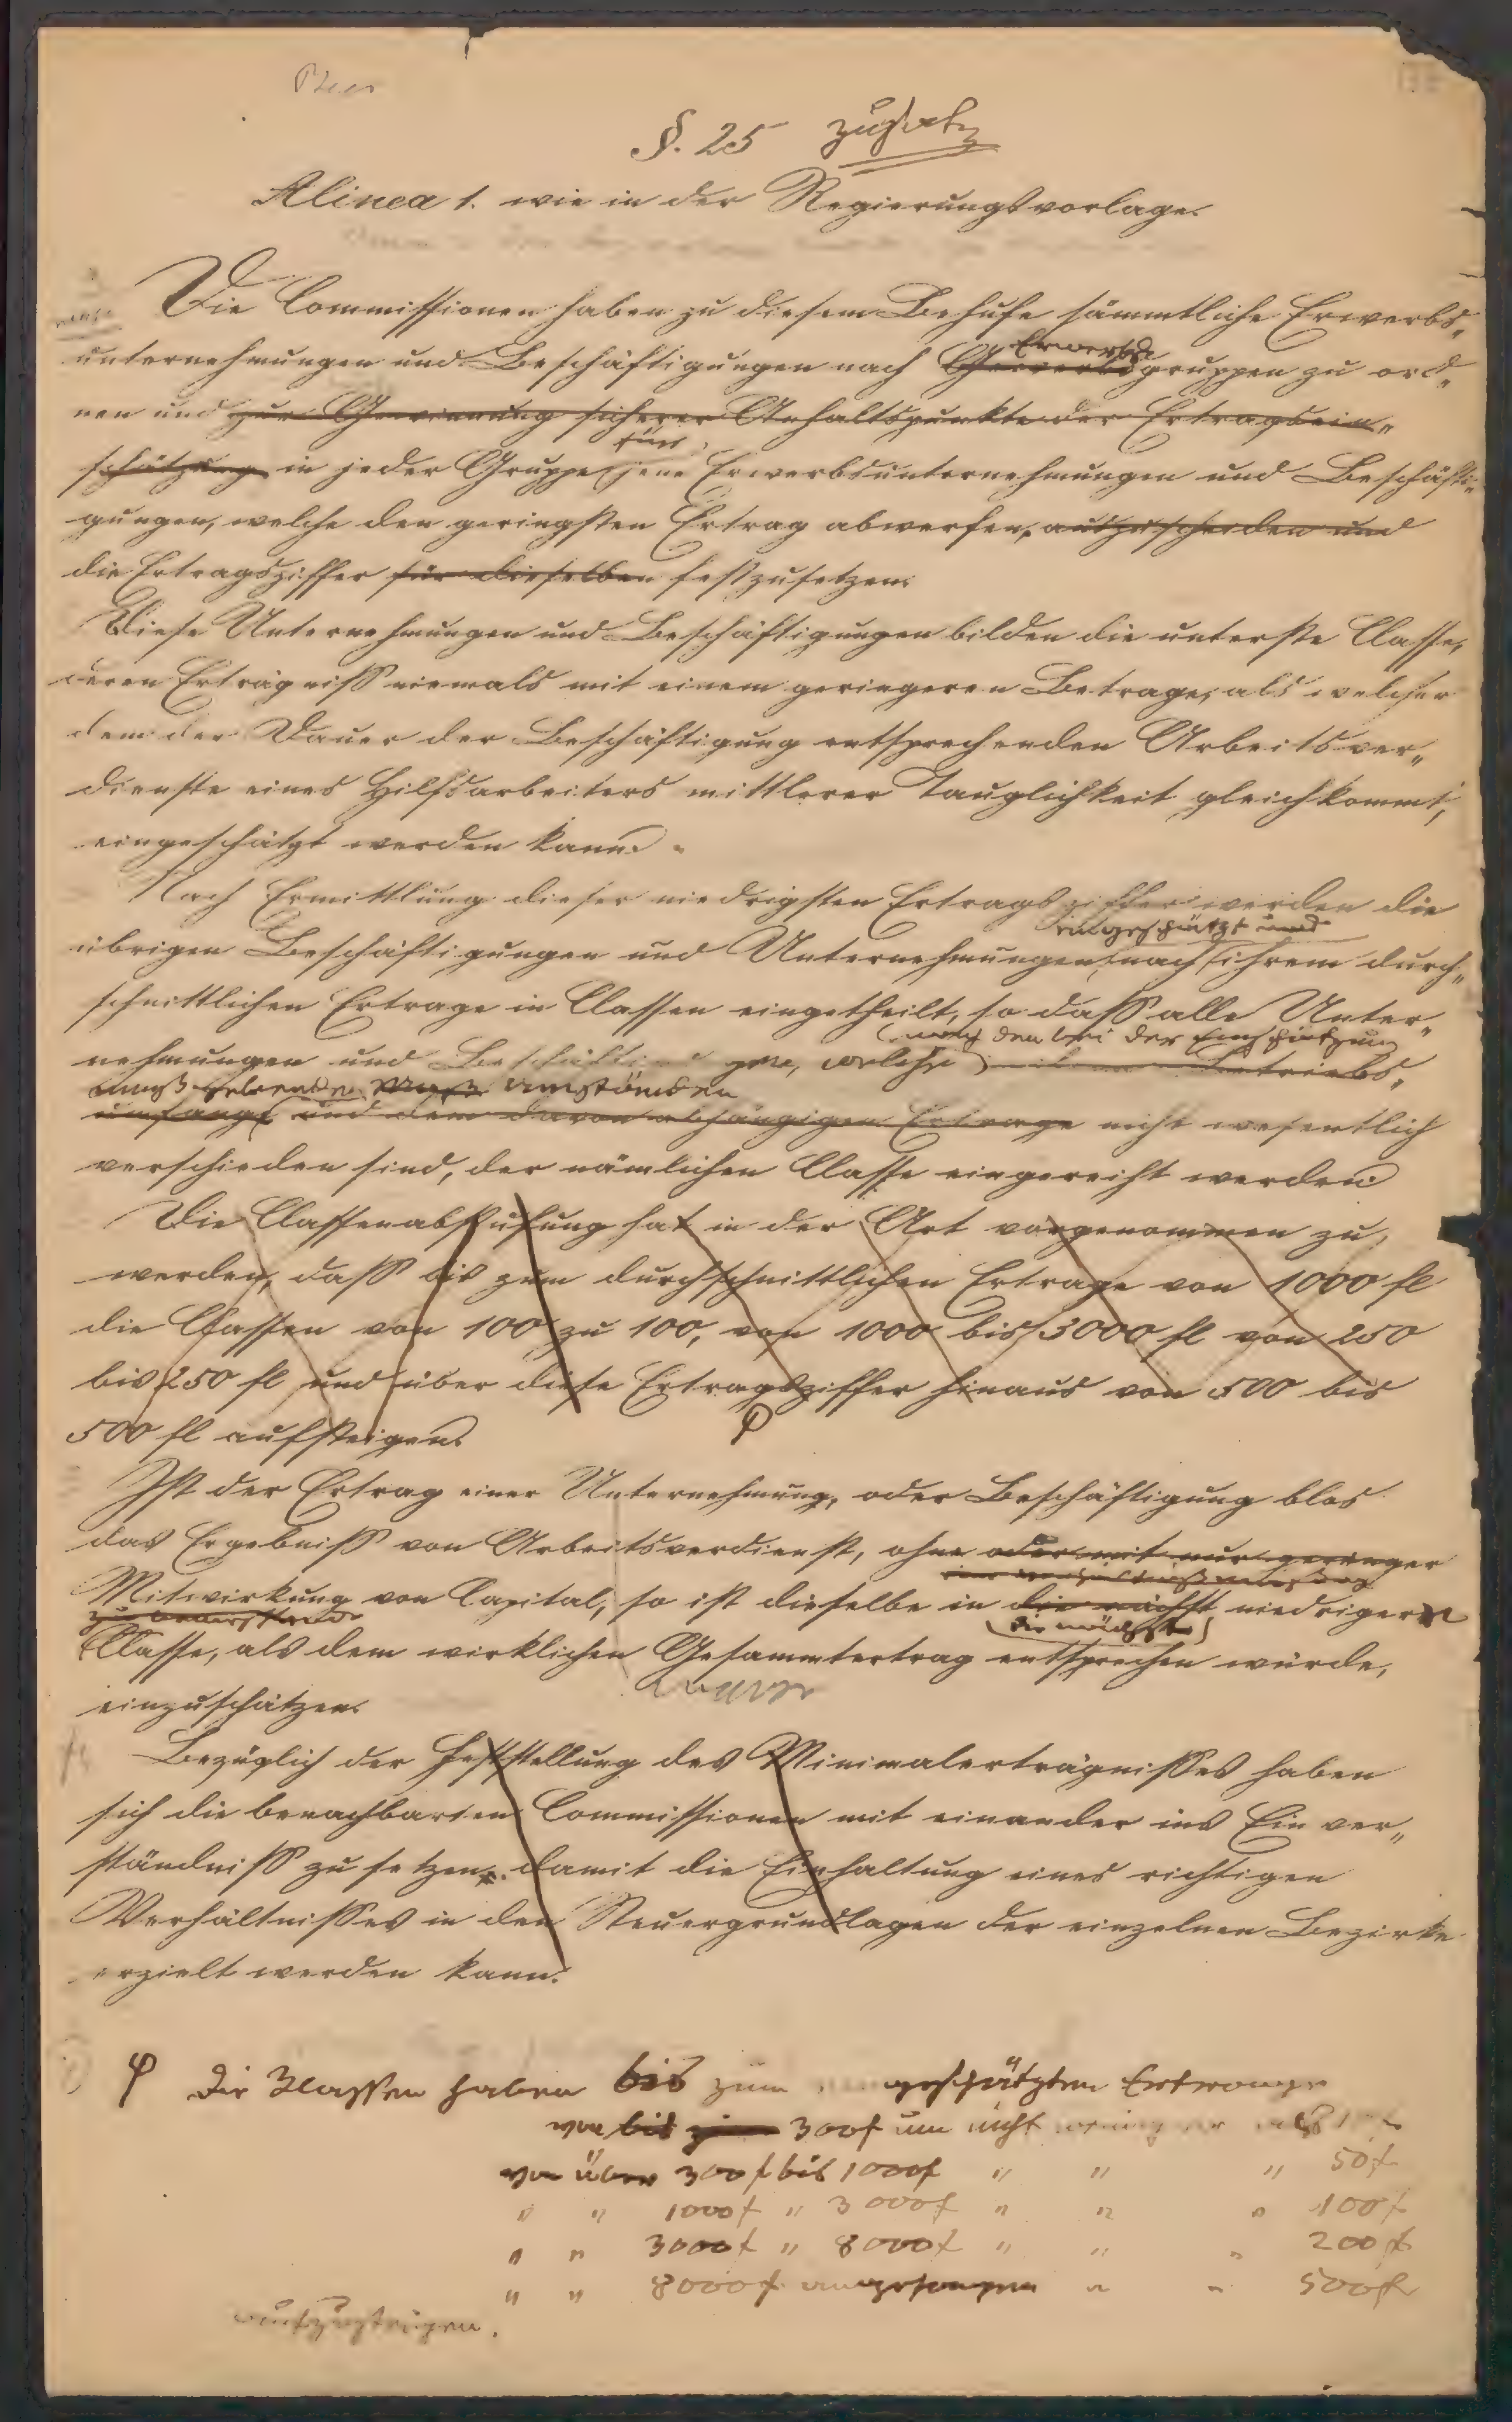 §. 25 Zusatz
Alinea 1. wie in der Regierungsvorlage.
Die Commissionen haben zu diesem Behufe sämmtliche Erwerbs„
unternehmungen und Beschäftigungen nach Erwerbs Gewerbsgruppen zu ord„
nen und zur Gewinnung sicherer Anhaltspunkte der Ertragsein„
schätzung in jeder Gruppe für jene Erwerbsunternehmungen und Beschäfti„
gungen, welche den geringsten Ertrag abwerfen, auszuscheiden und
die Ertragsziffer für dieselben festzusetzen.
Diese Unternehmungen und Beschäftigungen bilden die unterste Classe,
deren Erträgniß niemals mit einem geringeren Betrage, als welcher
dem der Dauer der Beschäftigung entsprechenden Arbeitsver„
dienste eines Hilfsarbeiters mittlerer Tauglichkeit gleichkommt,
eingeschätzt werden kann.
Nach Ermittlung dieser niedrigsten Ertragsziffer werden die
eingeschätzt und
übrigen Beschäftigungen und Unternehmungen nach ihrem durch„
schnittlichen Ertrage in Classen eingetheilt, so daß alle Unter„
nach den bei der Einschätzung
nehmungen und Beschäftigungen, welche Betriebs„
maßgebenden Umständen
umfange und dem davon abhängigen Ertrage nicht wesentlich
verschieden sind, der nämlichen Classe eingereiht werden.
Die Classenabstufung hat in der Art vorgenommen zu
werden, daß bis zum durchschnittlichen Ertrage von 1000 fl
die Classen von 100 zu 100, von 1000 bis 3000 fl von 250
bis 250 fl und über diese Ertragsziffer hinaus von 500 bis
500 fl aufsteigen.
Ist der Ertrag einer Unternehmung, oder Beschäftigung blos
das Ergebniß von Arbeitsverdienst, ohne oder mit nur geringer
Mitwirkung von Capital, so ist dieselbe in die nächst niedrigere
die nächst
Classe, als dem wirklichen Gesammtertrag entsprechen würde,
einzuschätzen.
Bezüglich der Feststellung des Minimalerträgnißes haben
sich die benachbarten Commissionen mit einander ins Einver„
ständniß zu setzen, damit die Einhaltung eines richtigen
Verhältnißes in den Steuergrundlagen der einzelnen Bezirke
erzielt werden kann.
φ Die Klassen haben bis zum eingeschätzten Ertrage
von bis zu 300 f um nicht weniger als
von über 300 f bis 1000 f " " " 50 f
" " 1000 f " 3000 f " " " 100 f
" " 3000 f " 8000 f " " " 200 f
" " 8000 f angefangen " " 500 f
aufzusteigen.